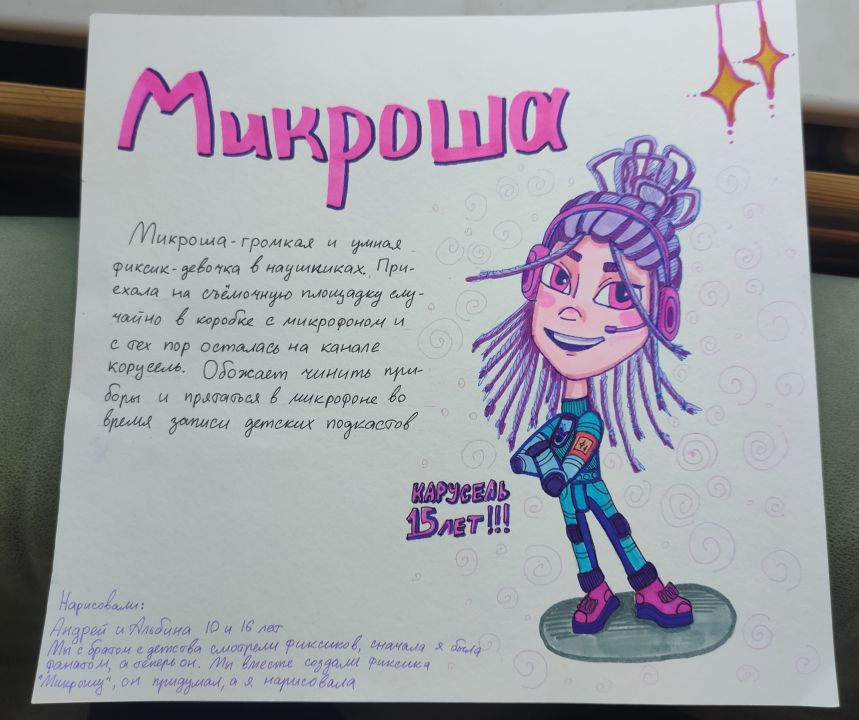 Микроша
Микроша-громкая и умная
фиксик-девочка в наушниках. При-
ехала на съёмочную площадку слу-
чайно в коробке с микрофоном и
с тех пор осталась на канале
корусель. Обожает чинить при-
боры и прятаться в микрофоне во
время записи детских подкастов
КАРУСЕЛЬ
15 ЛЕТ!!!
Нарисовали:
Андрей и Альбина 10 и 16 лет
Мы с братом с детства смотрели фиксиков, сначала я была
фанатом, а теперь он. Мы вместе создали фиксика
"Микрошу", он придумал, а я нарисовала